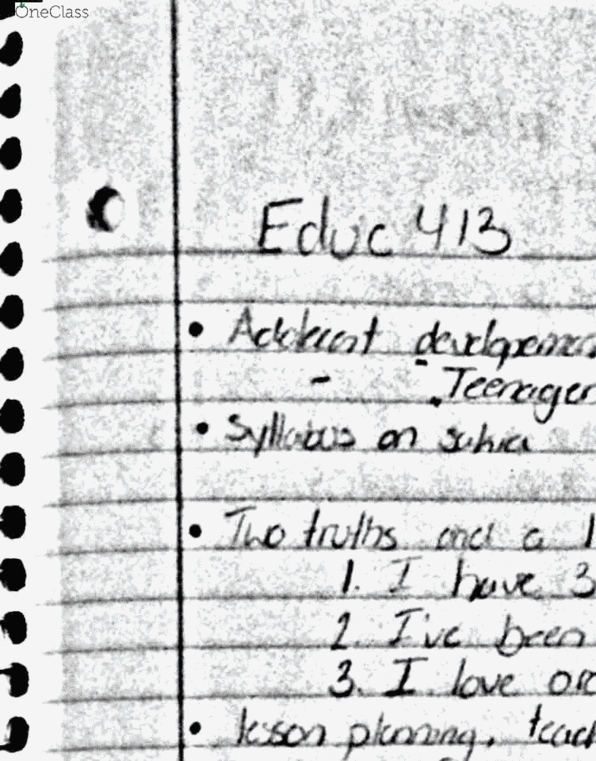 OneClass
Educ 413
• Adolecent developemen
- Teenager
• Syllabus on
• Two truths and a l
1. I have 3
2. I've been
3. I love
• lesson planning, teach